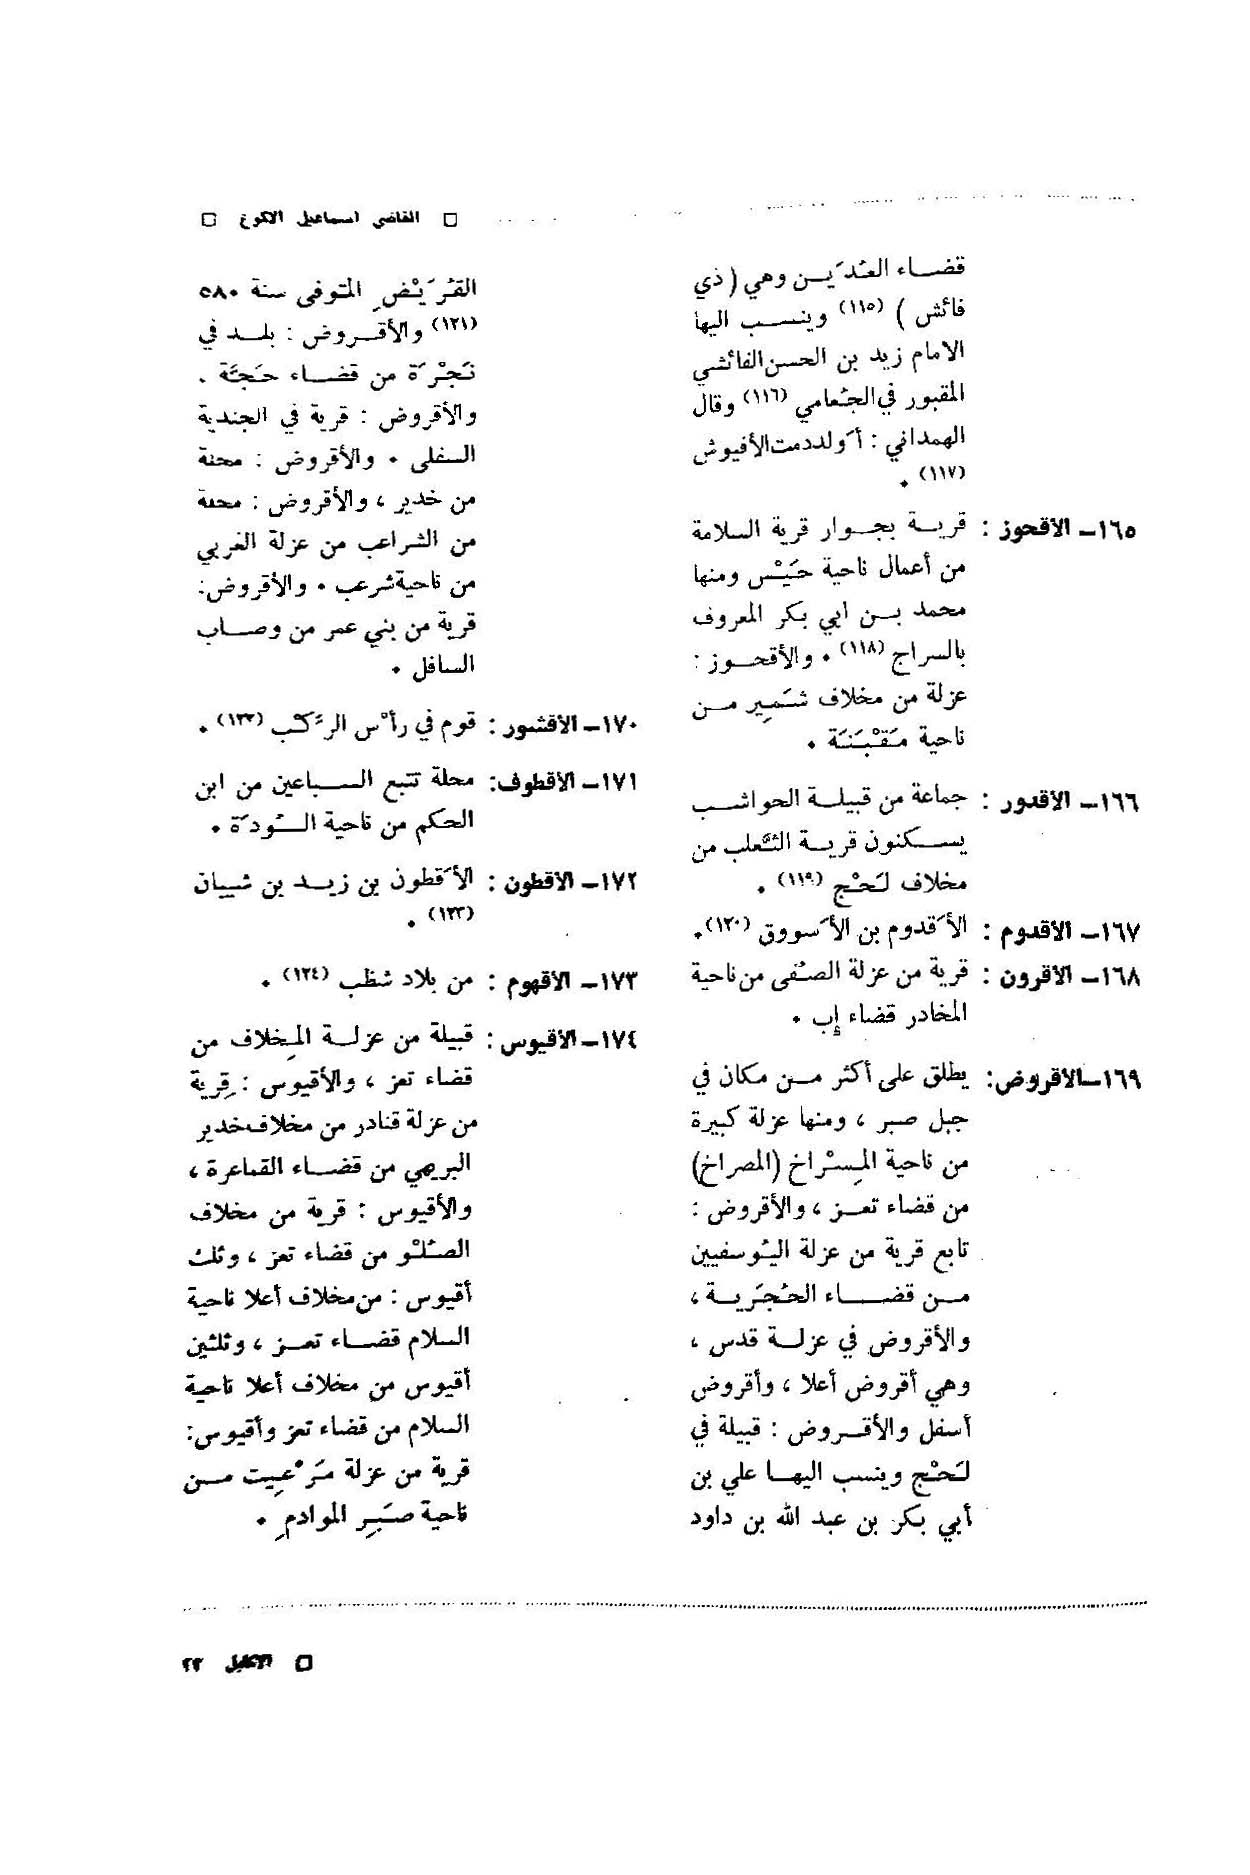 □ القاضي اسماعيل الاكوع □
قضاء العُدَين وهي ( ذي
فائش ) (١١٥) وينسب اليها
الامام زيد بن الحسن الفائشي
المقبور في الجُعامي (١١٦) وقال
الهمداني : أَولددمت الأفيوش
(١١٧) .
١٦٥– الأقحوز : قرية بجوار قرية السلامة
من أعمال ناحية حَيْس ومنها
محمد بن ابي بكر المعروف
بالسراج (١١٨) . والأقحوز :
عزلة من مخلاف شَمِير من
ناحية مَقْبَنَة .
١٦٦– الأقدور : جماعة من قبيلة الحواشب
يسكنون قرية الثَّعلب من
مخلاف لَحْج (١١٩) .
١٦٧– الأقدوم : الأَقدوم بن الأَسووق (١٢٠).
١٦٨– الأقرون : قرية من عزلة الصُفى من ناحية
المخادر قضاء إب .
١٦٩–الأقروض: يطلق على أكثر من مكان في
جبل صبر ، ومنها عزلة كبيرة
من ناحية المِسْراخ (المصراخ)
من قضاء تعز ، والأقروض :
تابع قرية من عزلة اليُوسفيين
من قضاء الحُجَرية ،
والأقروض في عزلة قدس ،
وهي أقروض أعلا ، وأقروض
أسفل والأقروض : قبيلة في
لَحْج وينسب اليها علي بن
أبي بكر بن عبد الله بن داود
القُرَيْضِ المتوفى سنة ٥٨٠
(١٢١) والأقروض : بلد في
نَجْرَة من قضاء حَجَّة .
والأقروض : قرية في الجندية
السفلى . والأقروض : محلة
من خدير ، والأقروض : محلة
من الشراعب من عزلة الغربي
من ناحية شرعب . والأقروض:
قرية من بني عمر من وصاب
السافل .
١٧٠– الأقشور : قوم في رأس الرَكْب (١٢٢) .
١٧١– الأقطوف: محلة تتبع السباعين من ابن
الحكم من ناحية السُودَة .
١٧٢– الأقطون : الأَقطون بن زيد بن شيبان
(١٢٣) .
١٧٣– الأقهوم : من بلاد شظب (١٢٤) .
١٧٤–الأقيوس : قبيلة من عزلة المِخلاف من
قضاء تعز ، والأقيوس : قرية
من عزلة قنادر من مخلاف خدير
البريهي من قضاء القماعرة ،
والأقيوس : قرية من مخلاف
الصُلْو من قضاء تعز ، وثلث
أقيوس : من مخلاف أعلا ناحية
السلام قضاء تعز ، وثلثين
أقيوس من مخلاف أعلا ناحية
السلام من قضاء تعز وأقيوس:
قرية من عزلة مَرْعِيت من
ناحية صَبِر الموادمِ .
□ الاكليل ٢٣